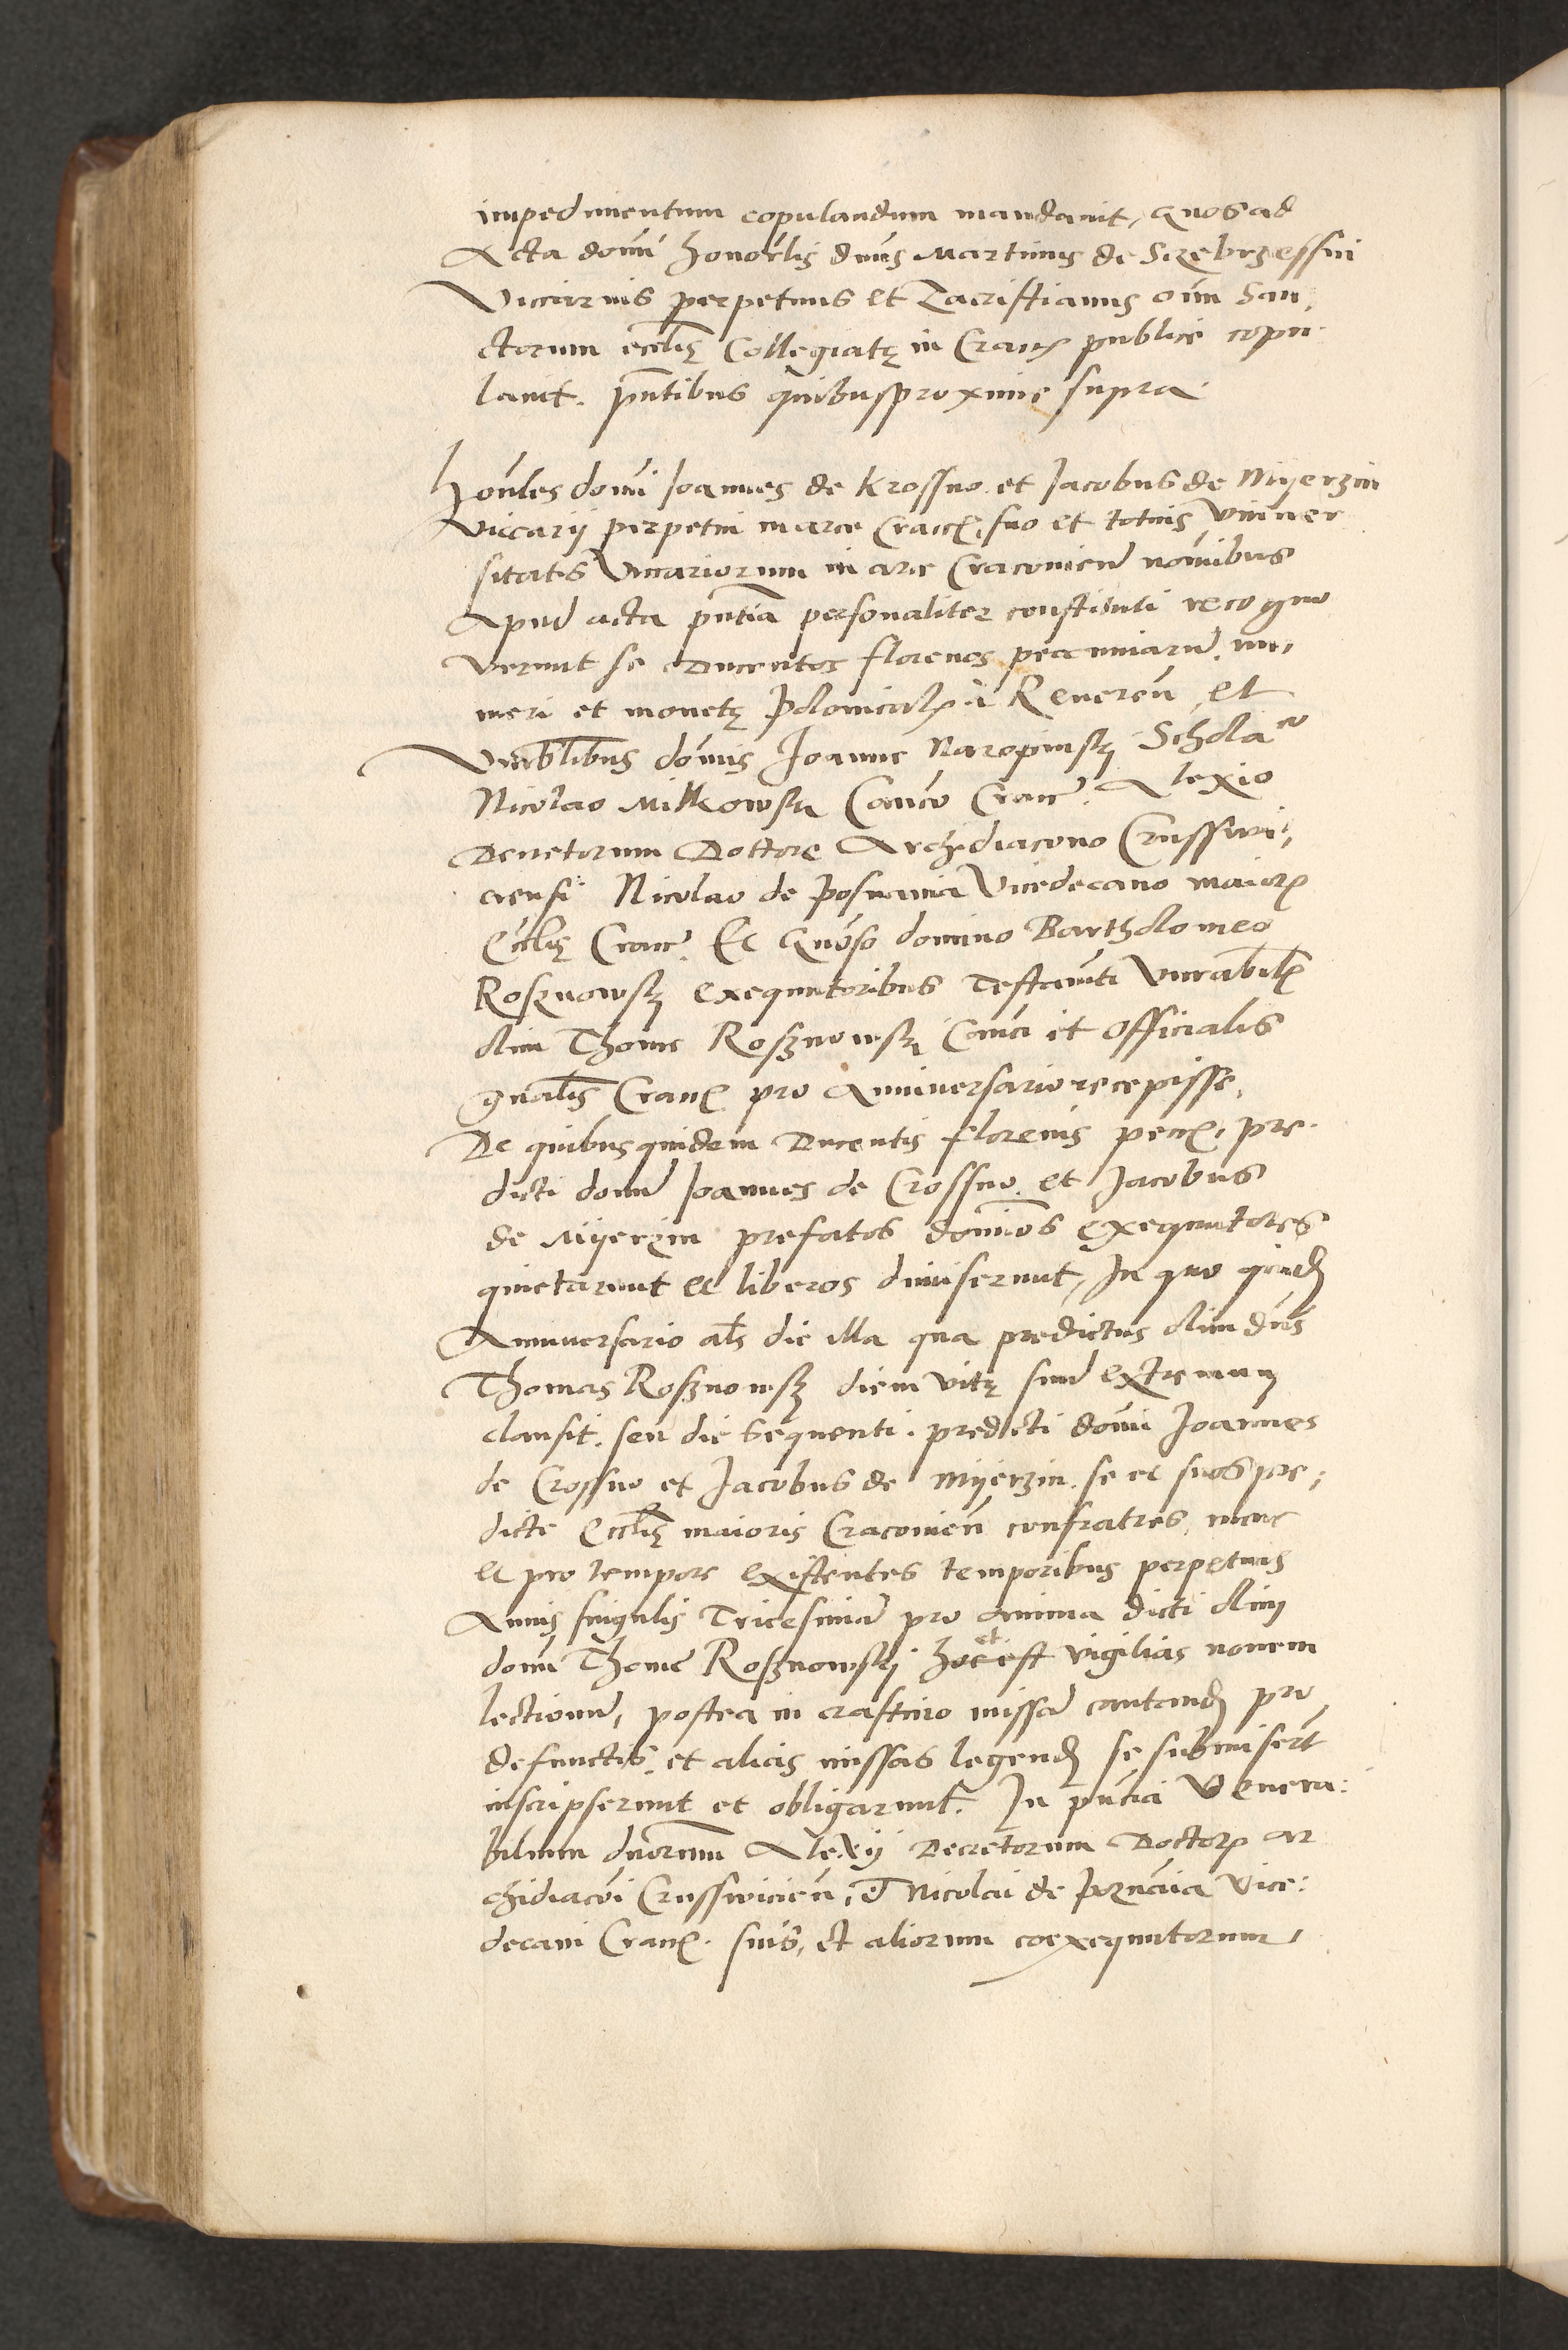 impedimentum copulandum mandavit, quos ad
Acta domi honorlis dnus Martinus de Sczebrzessin
Viccarius perpetuus et Zacristianus oim San,
ctorum ecclię Collegiatę in Crac publice copu
lavit. pntibus quibus proxime supra
honles domi Joannes de Krossno et Jacobus de Myerzin
Viccarij perpetui in arce Cracc, suo et totius Univer
sitatis Viccariorum in arce Cracovien nominibus
Apud acta pntia personaliter constituti recogno
verunt se Ducentos florenos pecuniaru, nu,
meri et monetę polonicalis à Reveren, et
Venerablibus domis Joanne Naropinsky Schola co
Nicolao Milkowsky Canco Crac. Alexio
Decretorum Doctore Archidiacono Crusswi,
ciensi Nicolao de posnania Vicedecano maioris
Ecclię Crac. Et Gnoso domino Bartholomeo
Rosznowsky exequutoribus Testamti Venerabilis
olim Thome Rosznowsky Canci et Officialis
gnalis Crac pro Anniversario recepisse,
De quibus quidem Ducentis florenis pecc, pre
dicti domi Joannes de Crossno, et Jacobus
de Myerzin prefatos dominos exequutores
quietarunt et liberos dimiserunt, In quo quid
Anniversario als die illa qua predictus olim dnus
Thomas Rosznowsky diem vitę suum extremum
clausit. seu die sequenti. predicti domi Joannes
de Crossno et Jacobus de Myerzin. se et suos pre,
dicte Ecclię maioris Cracovien confratres, nunc
et pro tempore existentes temporibus perpetuis
Annis singulis Tricesima pro anima dicti olim
domi Thome Rosznowsky hoc est vigilias novem
lectionu, postea in crastino missa cantand pro
defunctis, et alias missas legend se submisert
inscripserunt et obligarunt. In pntia Venera:
bilium dnorum Alexij Decretorum Doctoris Ar
chidiaconi Crusswicien, et Nicolai de poznania Vice:
decani Crac. suis, et aliorum coexequutorum,